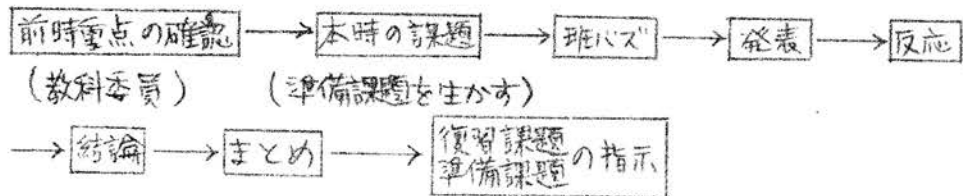 前時重点の確認 → 本時の課題 → 班バズ → 発表 → 反応
(教科委員) (準備課題を生かす)
→ 結論 → まとめ → 復習課題
準備課題 の指示